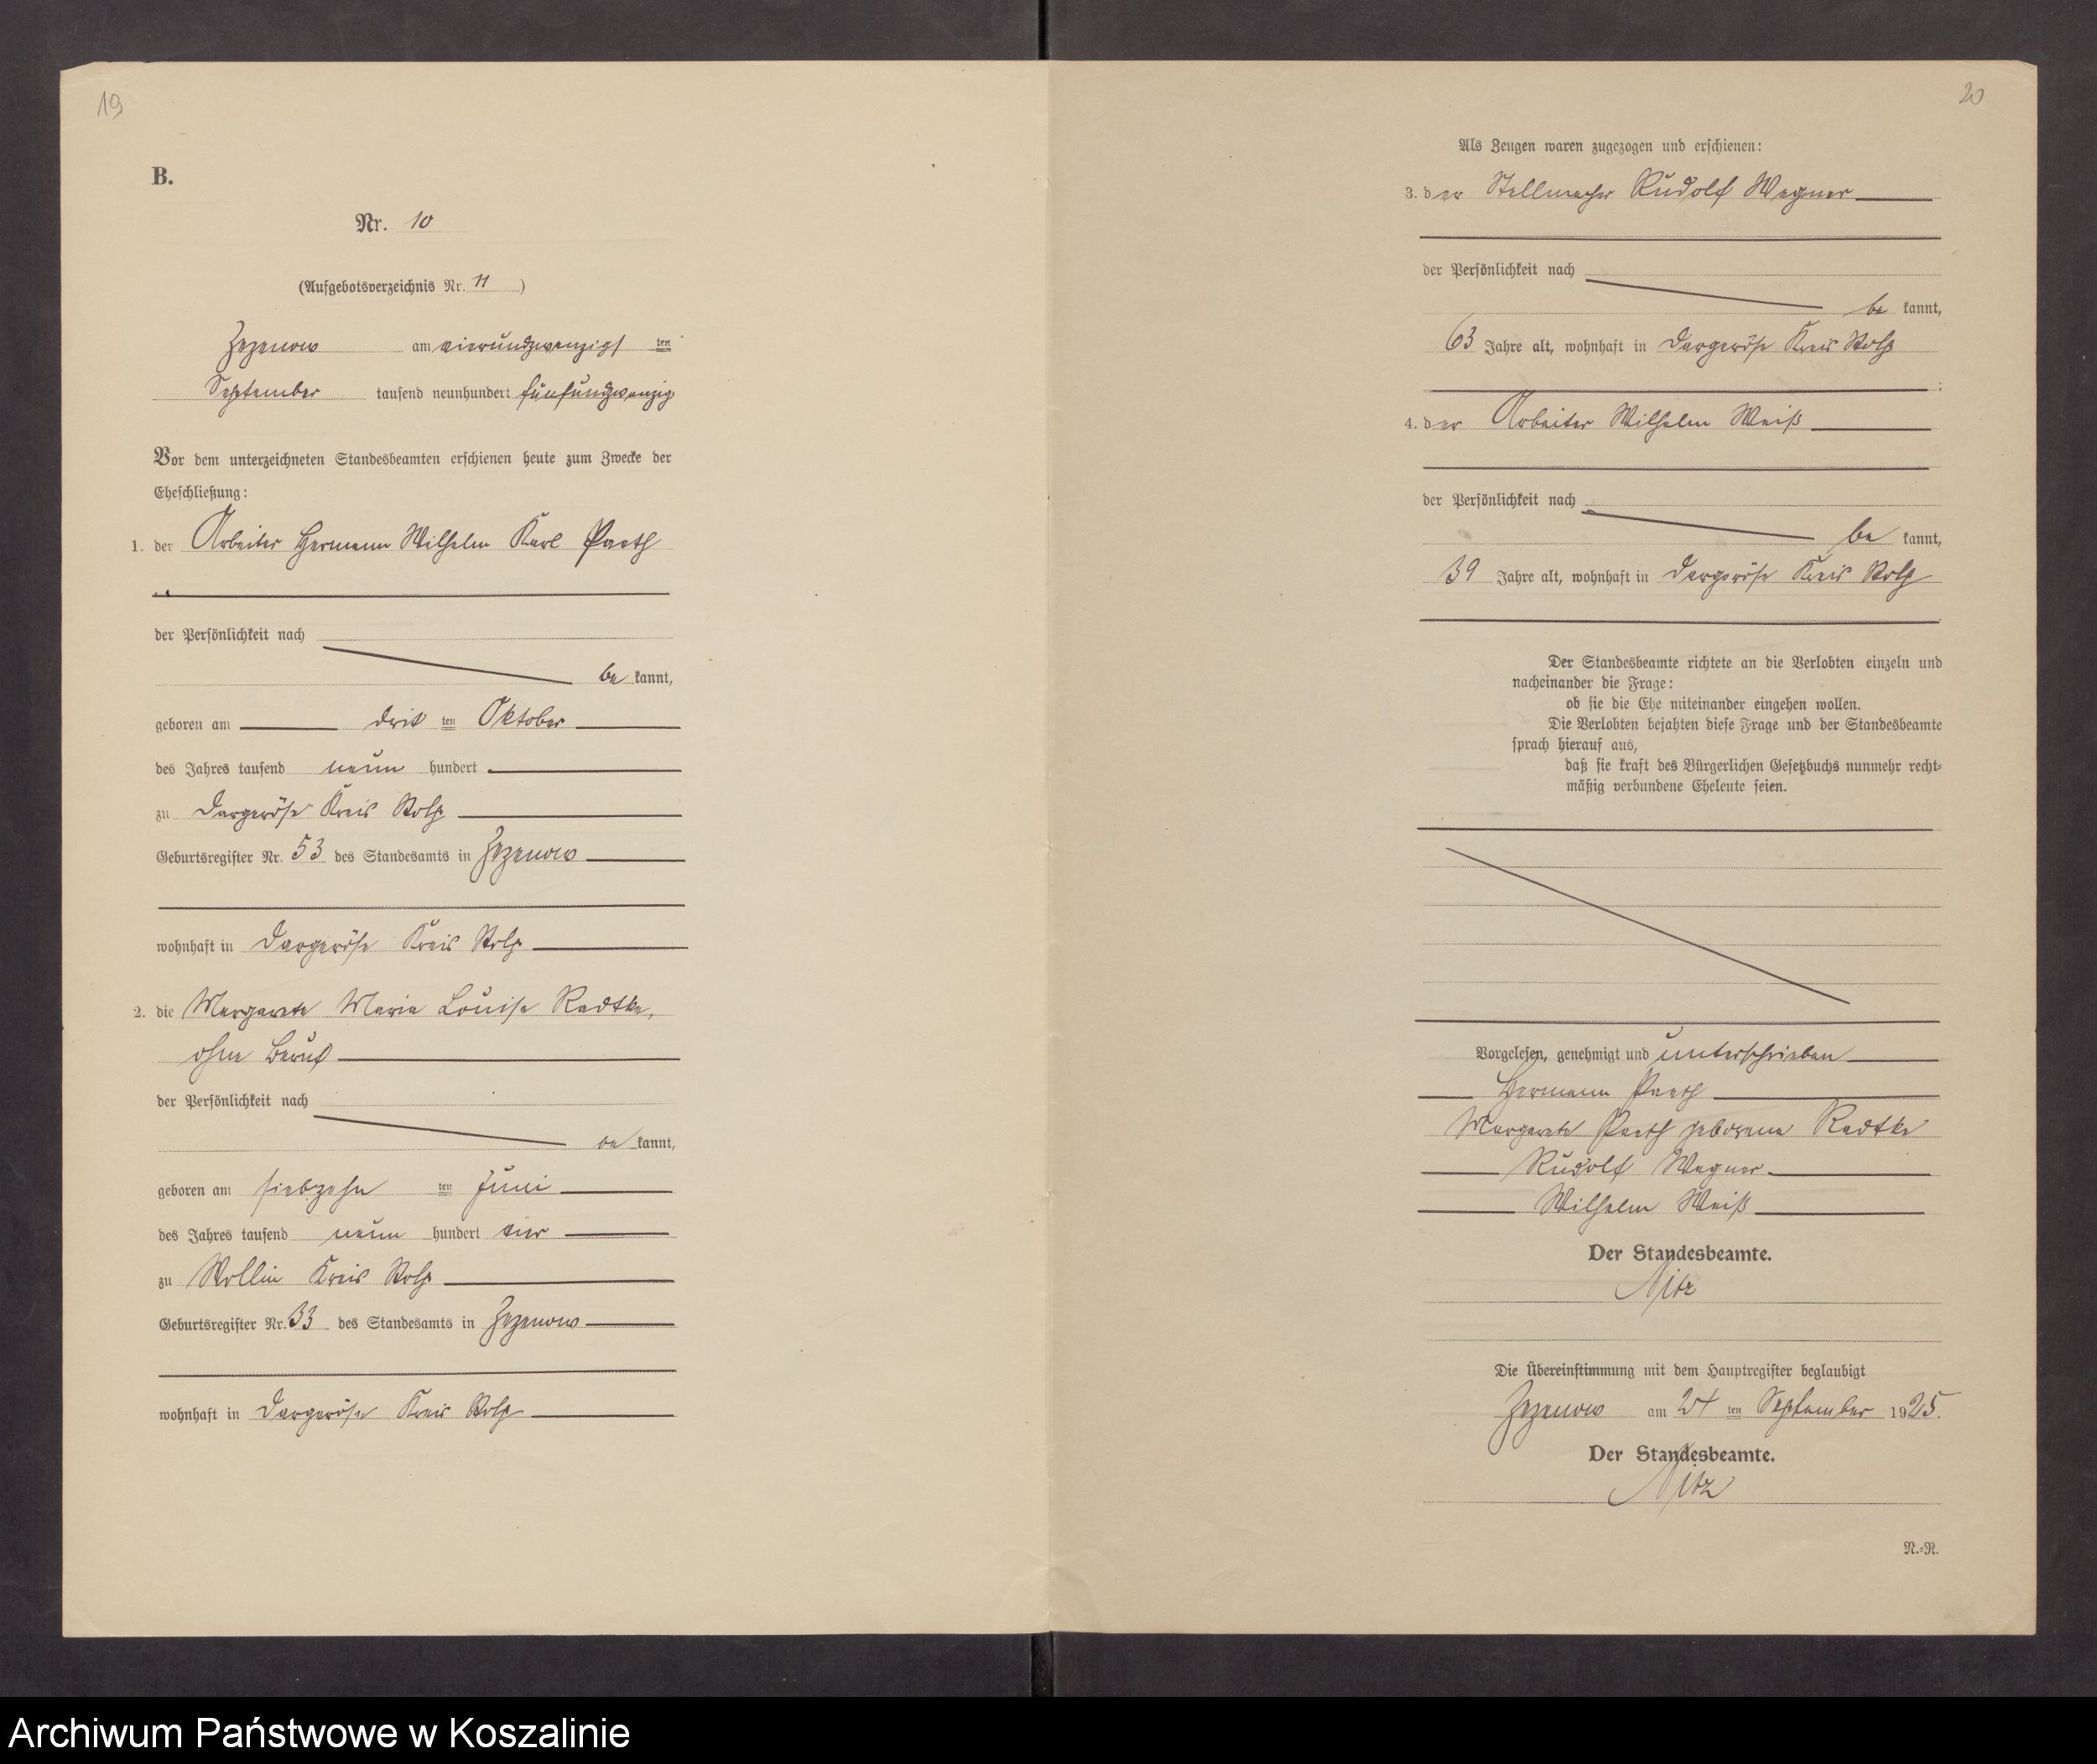 19
B.
Nr. 10
(Aufgebotsverzeichnis Nr. 11)
Zezenow am vierundzwanzigsten
September tausend neunhundert fünfundzwanzig
Vor dem unterzeichneten Standesbeamten erschienen heute zum Zwecke der
Eheschließung:
1. der Arbeiter Hermann Wilhelm Karl Paeth
der Persönlichkeit nach
bekannt,
geboren am dritten Oktober
des Jahres tausend neun hundert
zu Dargeröse Kreis Stolp
Geburtsregister Nr. 53 des Standesamts in Zezenow
wohnhaft in Dargeröse Kreis Stolp
2. die Margarete Marie Louise Radtke,
ohne Beruf
der Persönlichkeit nach
bekannt,
geboren am siebzehnten Juni
des Jahres tausend neun hundert vier
zu Wollin Kreis Stolp
Geburtsregister Nr. 33 des Standesamts in Zezenow
wohnhaft in Dargeröse Kreis Stolp
20
Als Zeugen waren zugezogen und erschienen:
3. der Stellmacher Rudolf Wegner
der Persönlichkeit nach
bekannt,
63 Jahre alt, wohnhaft in Dargeröse Kreis Stolp
;
4. der Arbeiter Wilhelm Weiß
der Persönlichkeit nach
bekannt,
39 Jahre alt, wohnhaft in Dargeröse Kreis Stolp
Der Standesbeamte richtete an die Verlobten einzeln und
nacheinander die Frage:
ob sie die Ehe miteinander eingehen wollen.
Die Verlobten bejahten diese Frage und der Standesbeamte
sprach hierauf aus,
daß sie kraft des Bürgerlichen Gesetzbuchs nunmehr recht-
mäßig verbundene Eheleute seien.
Vorgelesen, genehmigt und unterschrieben
Hermann Paeth
Margarete Paeth geborene Radtke
Rudolf Wegner
Wilhelm Weiß
Der Standesbeamte.
Nitz
Die Übereinstimmung mit dem Hauptregister beglaubigt
Zezenow am 24 ten September 1925.
Der Standesbeamte.
Nitz
N.-R.
Archiwum Państwowe w Koszalinie